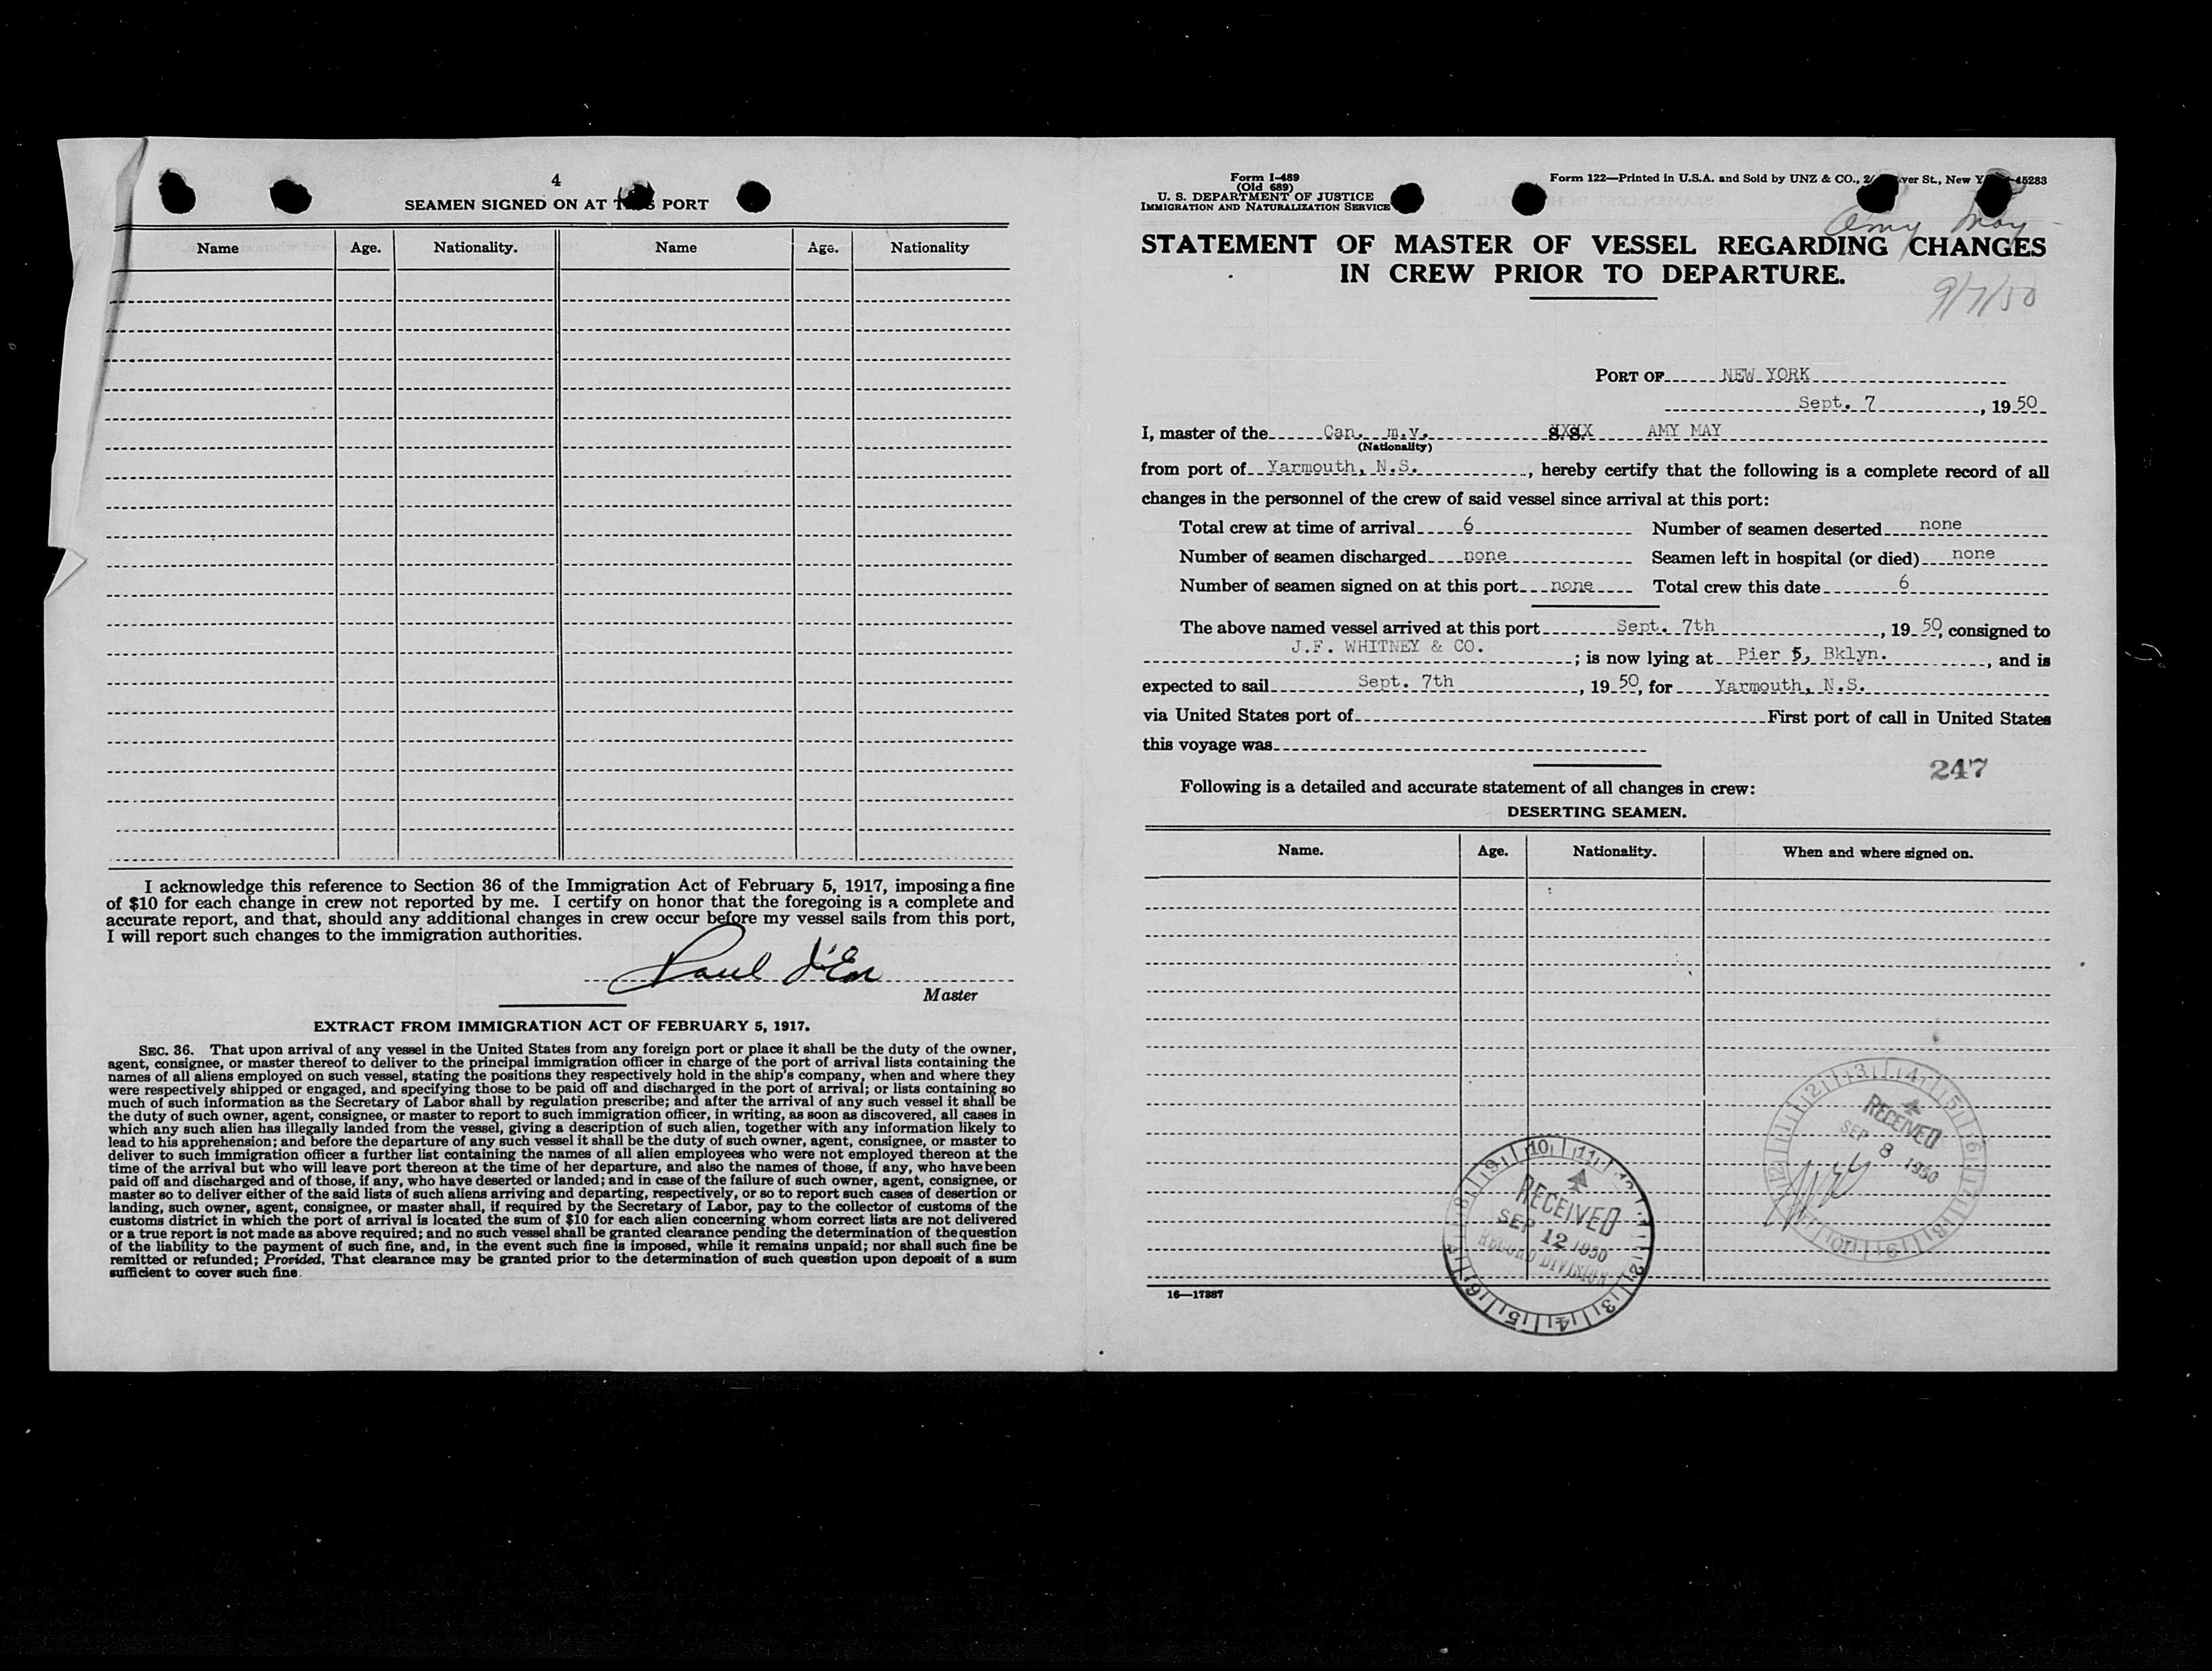 4
SEAMEN SIGNED ON AT THIS PORT
Name Age. Nationality. Name Age. Nationality
I acknowledge this reference to Section 36 of the Immigration Act of February 5, 1917, imposing a fine
of $10 for each change in crew not reported by me. I certify on honor that the foregoing is a complete and
accurate report, and that, should any additional changes in crew occur before my vessel sails from this port,
I will report such changes to the immigration authorities.
Paul
Master
EXTRACT FROM IMMIGRATION ACT OF FEBRUARY 5, 1917.
SEC. 36. That upon arrival of any vessel in the United States from any foreign port or place it shall be the duty of the owner,
agent, consignee, or master thereof to deliver to the principal immigration officer in charge of the port of arrival lists containing the
names of all aliens employed on such vessel, stating the positions they respectively hold in the ship's company, when and where they
were respectively shipped or engaged, and specifying those to be paid off and discharged in the port of arrival; or lists containing so
much of such information as the Secretary of Labor shall by regulation prescribe; and after the arrival of any such vessel it shall be
the duty of such owner, agent, consignee, or master to report to such immigration officer, in writing, as soon as discovered, all cases in
which any such alien has illegally landed from the vessel, giving a description of such alien, together with any information likely to
lead to his apprehension; and before the departure of any such vessel it shall be the duty of such owner, agent, consignee, or master to
deliver to such immigration officer a further list containing the names of all alien employees who were not employed thereon at the
time of the arrival but who will leave port thereon at the time of her departure, and also the names of those, if any, who have been
paid off and discharged and of those, if any, who have deserted or landed; and in case of the failure of such owner, agent, consignee, or
master so to deliver either of the said lists of such aliens arriving and departing, respectively, or so to report such cases of desertion or
landing, such owner, agent, consignee, or master shall, if required by the Secretary of Labor, pay to the collector of customs of the
customs district in which the port of arrival is located the sum of $10 for each alien concerning whom correct lists are not delivered
or a true report is not made as above required; and no such vessel shall be granted clearance pending the determination of the question
of the liability to the payment of such fine, and, in the event such fine is imposed, while it remains unpaid; nor shall such fine be
remitted or refunded; Provided, That clearance may be granted prior to the determination of such question upon deposit of a sum
sufficient to cover such fine.
Form I-489
(Old 689)
U. S. DEPARTMENT OF JUSTICE
IMMIGRATION AND NATURALIZATION SERVICE
Form 122—Printed in U.S.A. and Sold by UNZ & CO., St., New 45283
Amy May
STATEMENT OF MASTER OF VESSEL REGARDING CHANGES
IN CREW PRIOR TO DEPARTURE.
9/7/50
PORT OF NEW YORK
Sept. 7, 19 50
I, master of the Can. m.v. AMY MAY
(Nationality)
from port of Yarmouth, N.S., hereby certify that the following is a complete record of all
changes in the personnel of the crew of said vessel since arrival at this port:
Total crew at time of arrival 6 Number of seamen deserted none
Number of seamen discharged none Seamen left in hospital (or died) none
Number of seamen signed on at this port none Total crew this date 6
The above named vessel arrived at this port Sept. 7th, 19 50, consigned to
J.F. WHITNEY & CO.; is now lying at Pier 5, Bklyn., and is
expected to sail Sept. 7th, 19 50, for Yarmouth, N.S.
via United States port of First port of call in United States
this voyage was
247
Following is a detailed and accurate statement of all changes in crew:
DESERTING SEAMEN.
Name. Age. Nationality. When and where signed on.
RECEIVED
SEP 8 1950
RECEIVED
SEP 12 1950
RECORD DIVISION
16—17387